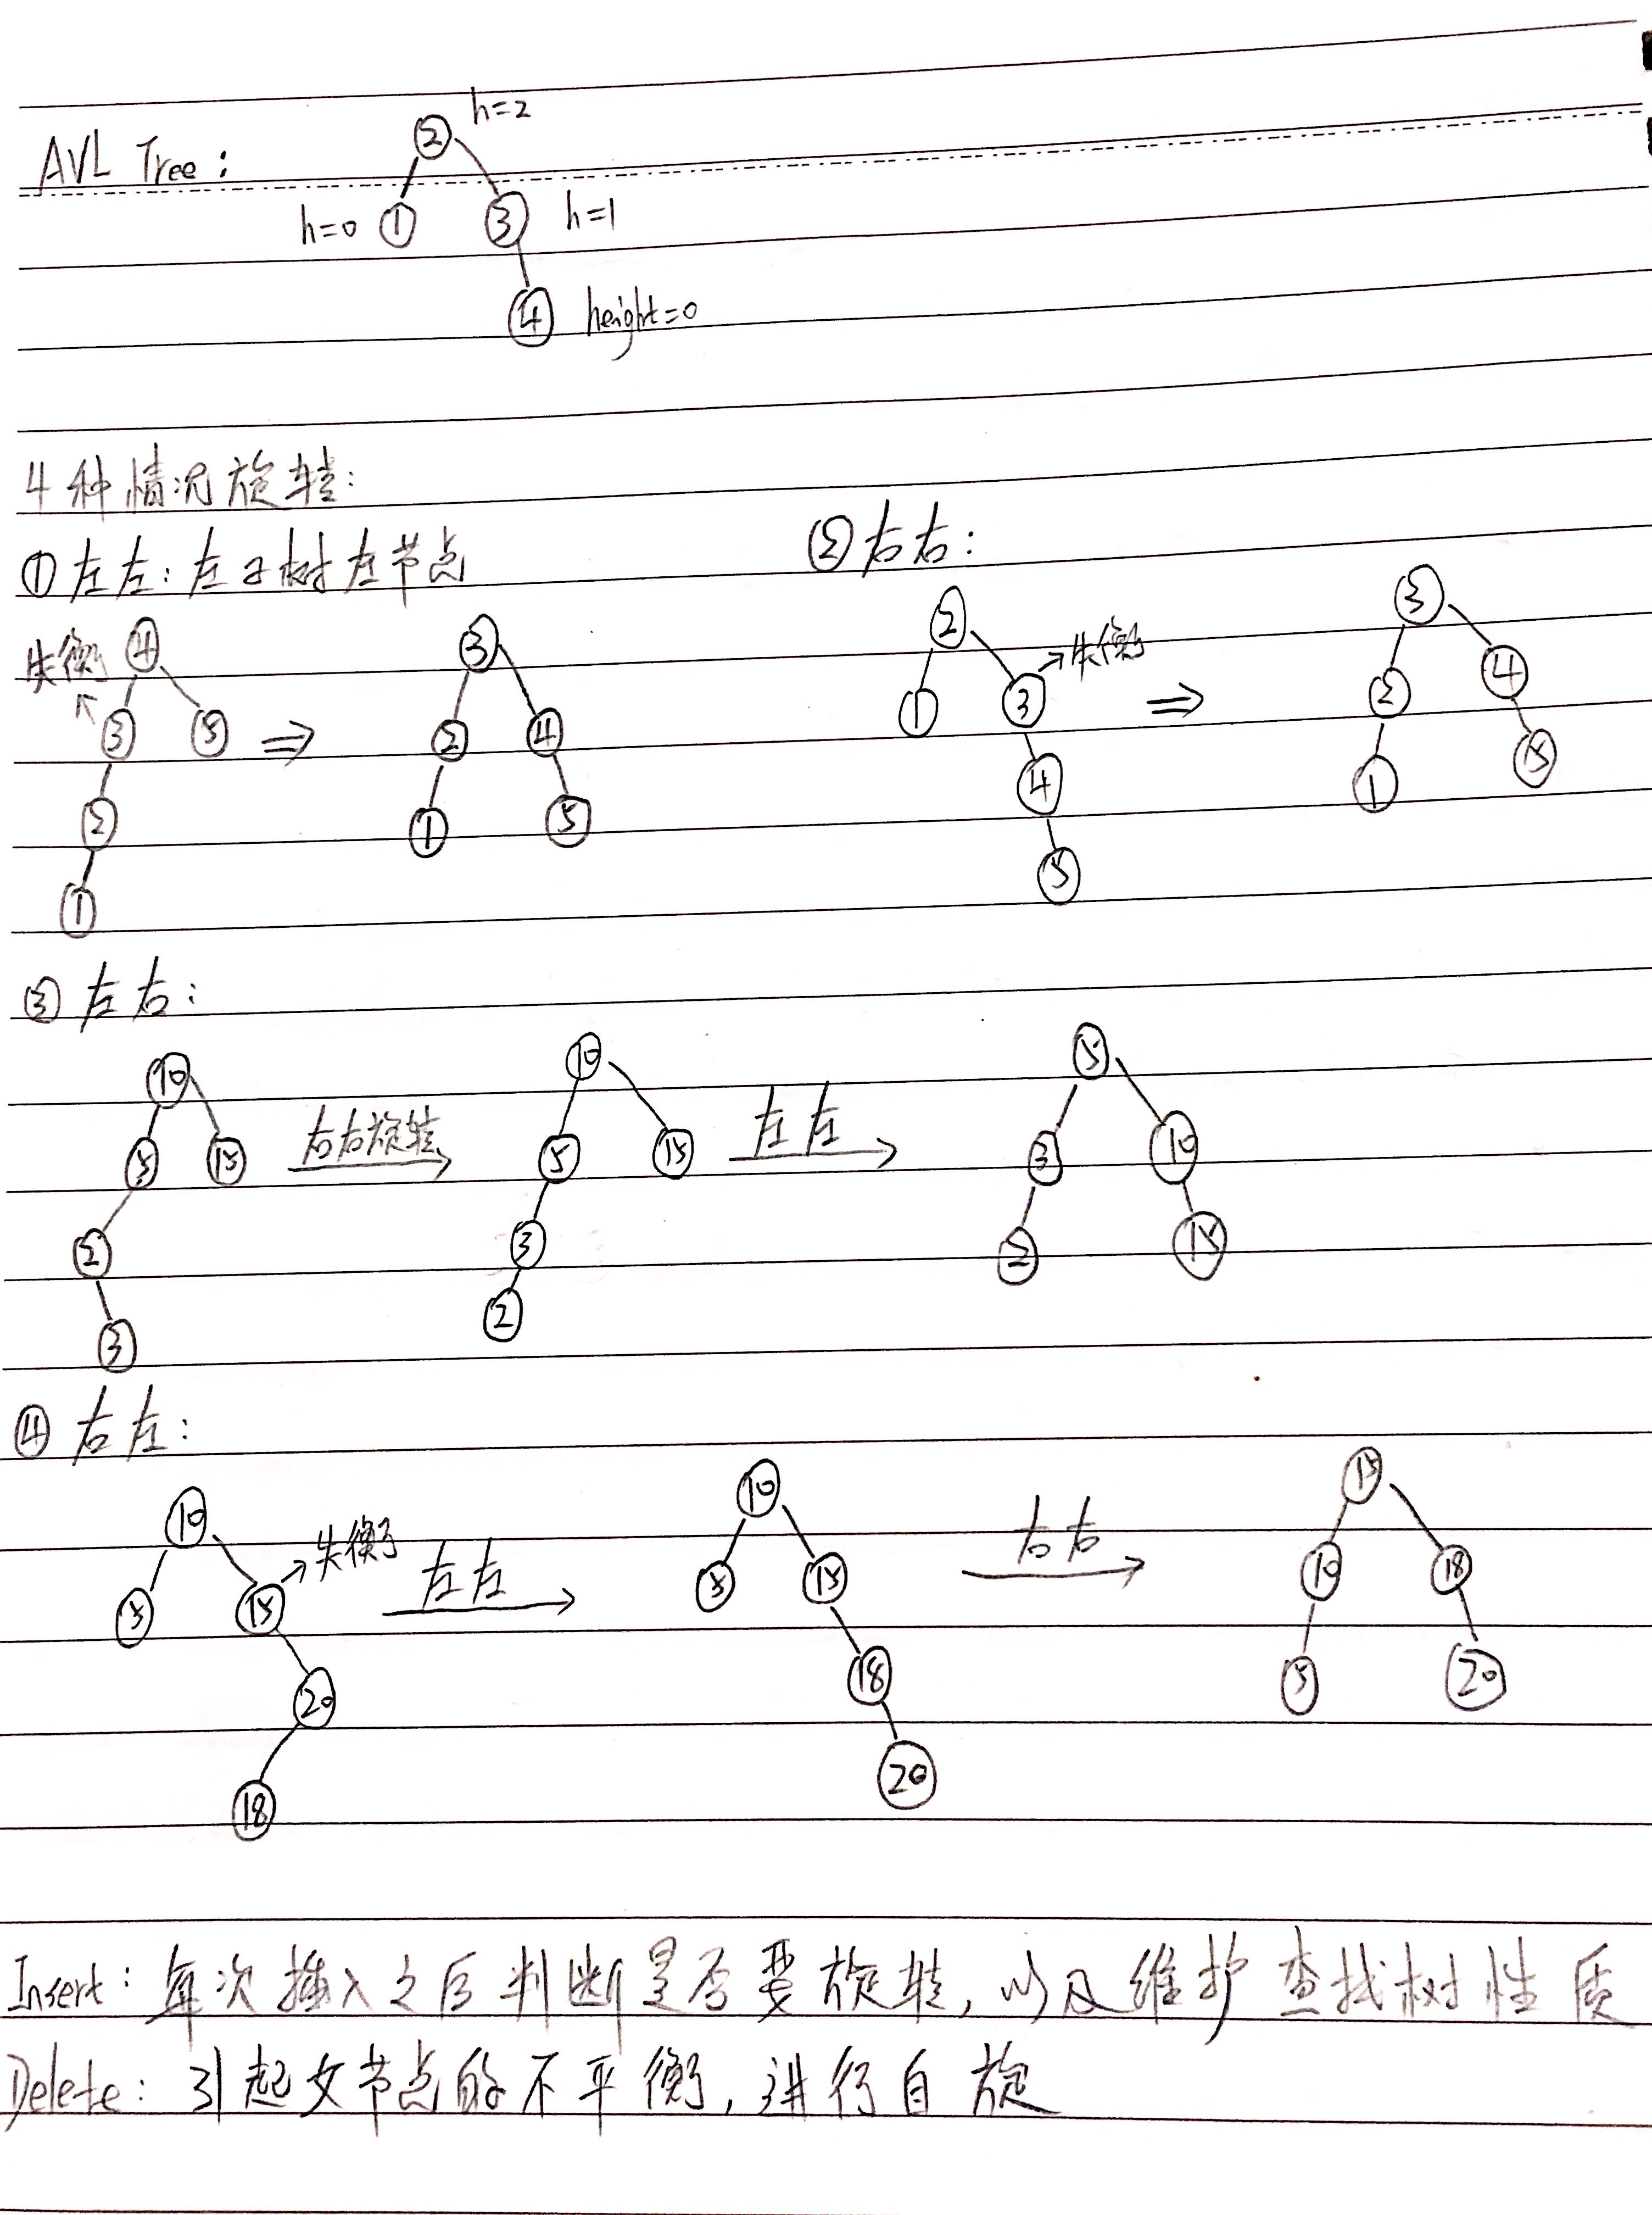 h=2
②
AVL Tree:
h=0 ① ③ h=1
④ height=0
4种情况旋转:
①左左:左子树左节点 ②右右:
失衡 ④ ③ ② →失衡 ③
③ ⑤ ⇒ ② ④ ① ③ ⇒ ② ④
② ① ⑤ ④ ① ⑤
① ⑤
③左右:
⑩ ⑩ ⑤
⑤ ⑮ 右右旋转 ⑤ ⑮ 左左 ③ ⑩
② ③ ② ⑮
③ ②
④右左:
⑩ →失衡了 ⑩ ⑮
⑤ ⑮ 左左 ⑤ ⑮ 右右 ⑩ ⑱
⑳ ⑱ ⑤ ⑳
⑱ ⑳
Insert:每次插入之后判断是否要旋转,以及维护查找树性质
Delete:引起父节点的不平衡,进行自旋